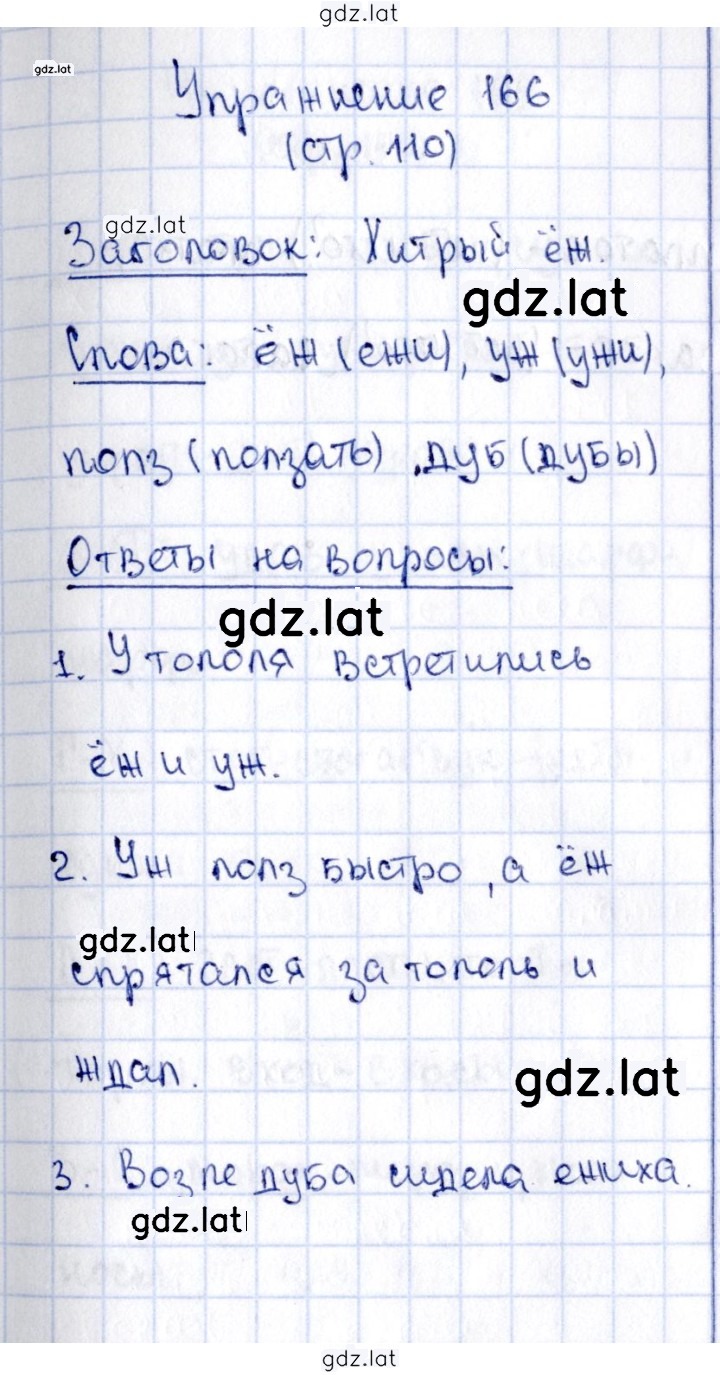 gdz.lat
gdz.lat
Упражнение 166
(стр. 110)
gdz.lat
Заголовок: Хитрый ёж.
gdz.lat
Слова: ёж (ежи), уж (ужи),
полз (ползать), дуб (дубы)
Ответы на вопросы:
gdz.lat
1. У тополя встретились
ёж и уж.
2. Уж полз быстро, а ёж
gdz.lat
спрятался за тополь и
ждал.
gdz.lat
3. Возле дуба сидела ежиха.
gdz.lat
gdz.lat